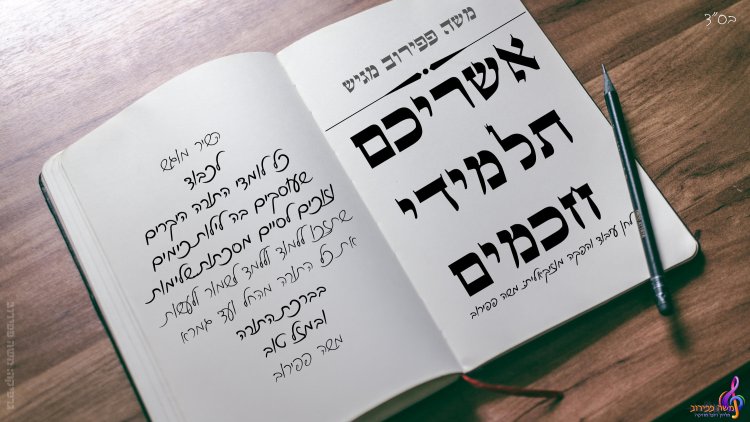 בס"ד
משה פפירוב מגיש
אשריכם
תלמידי
חכמים
לחן עיבוד והפקה מוזיקאלית: משה פפירוב
השיר מוגש
לכבוד
כל לומדי התורה היקרים
שעוסקים בה לילות כימים
וזוכים לסיים מסכתות שלימות
שתזכו ללמוד וללמד לשמור ולעשות
את כל התורה מהחל ועד גמרא
בברכת התורה
ובמזל טוב
משה פפירוב
משה פפירוב